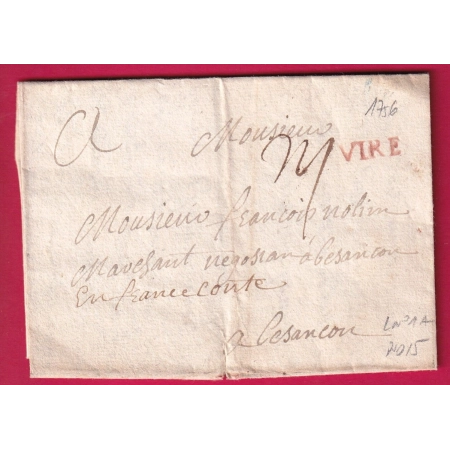 1756
a Monsieur
VIRE
Monsieur francois nolin
Marchant negossian a besancon
En france conte
a besancon